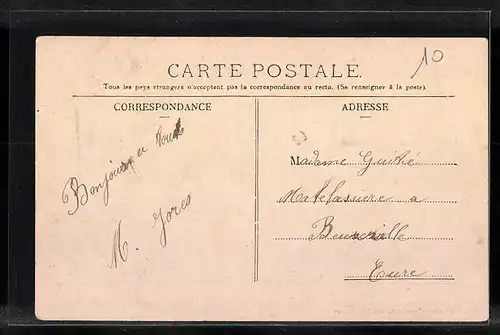 10
CARTE POSTALE.
Tous les pays étrangers n'acceptent pas la correspondance au recto. (Se renseigner à la poste).
CORRESPONDANCE
ADRESSE
Bonjour a tous
M.
Madame
Matelassiere a
Beuzeville
Eure